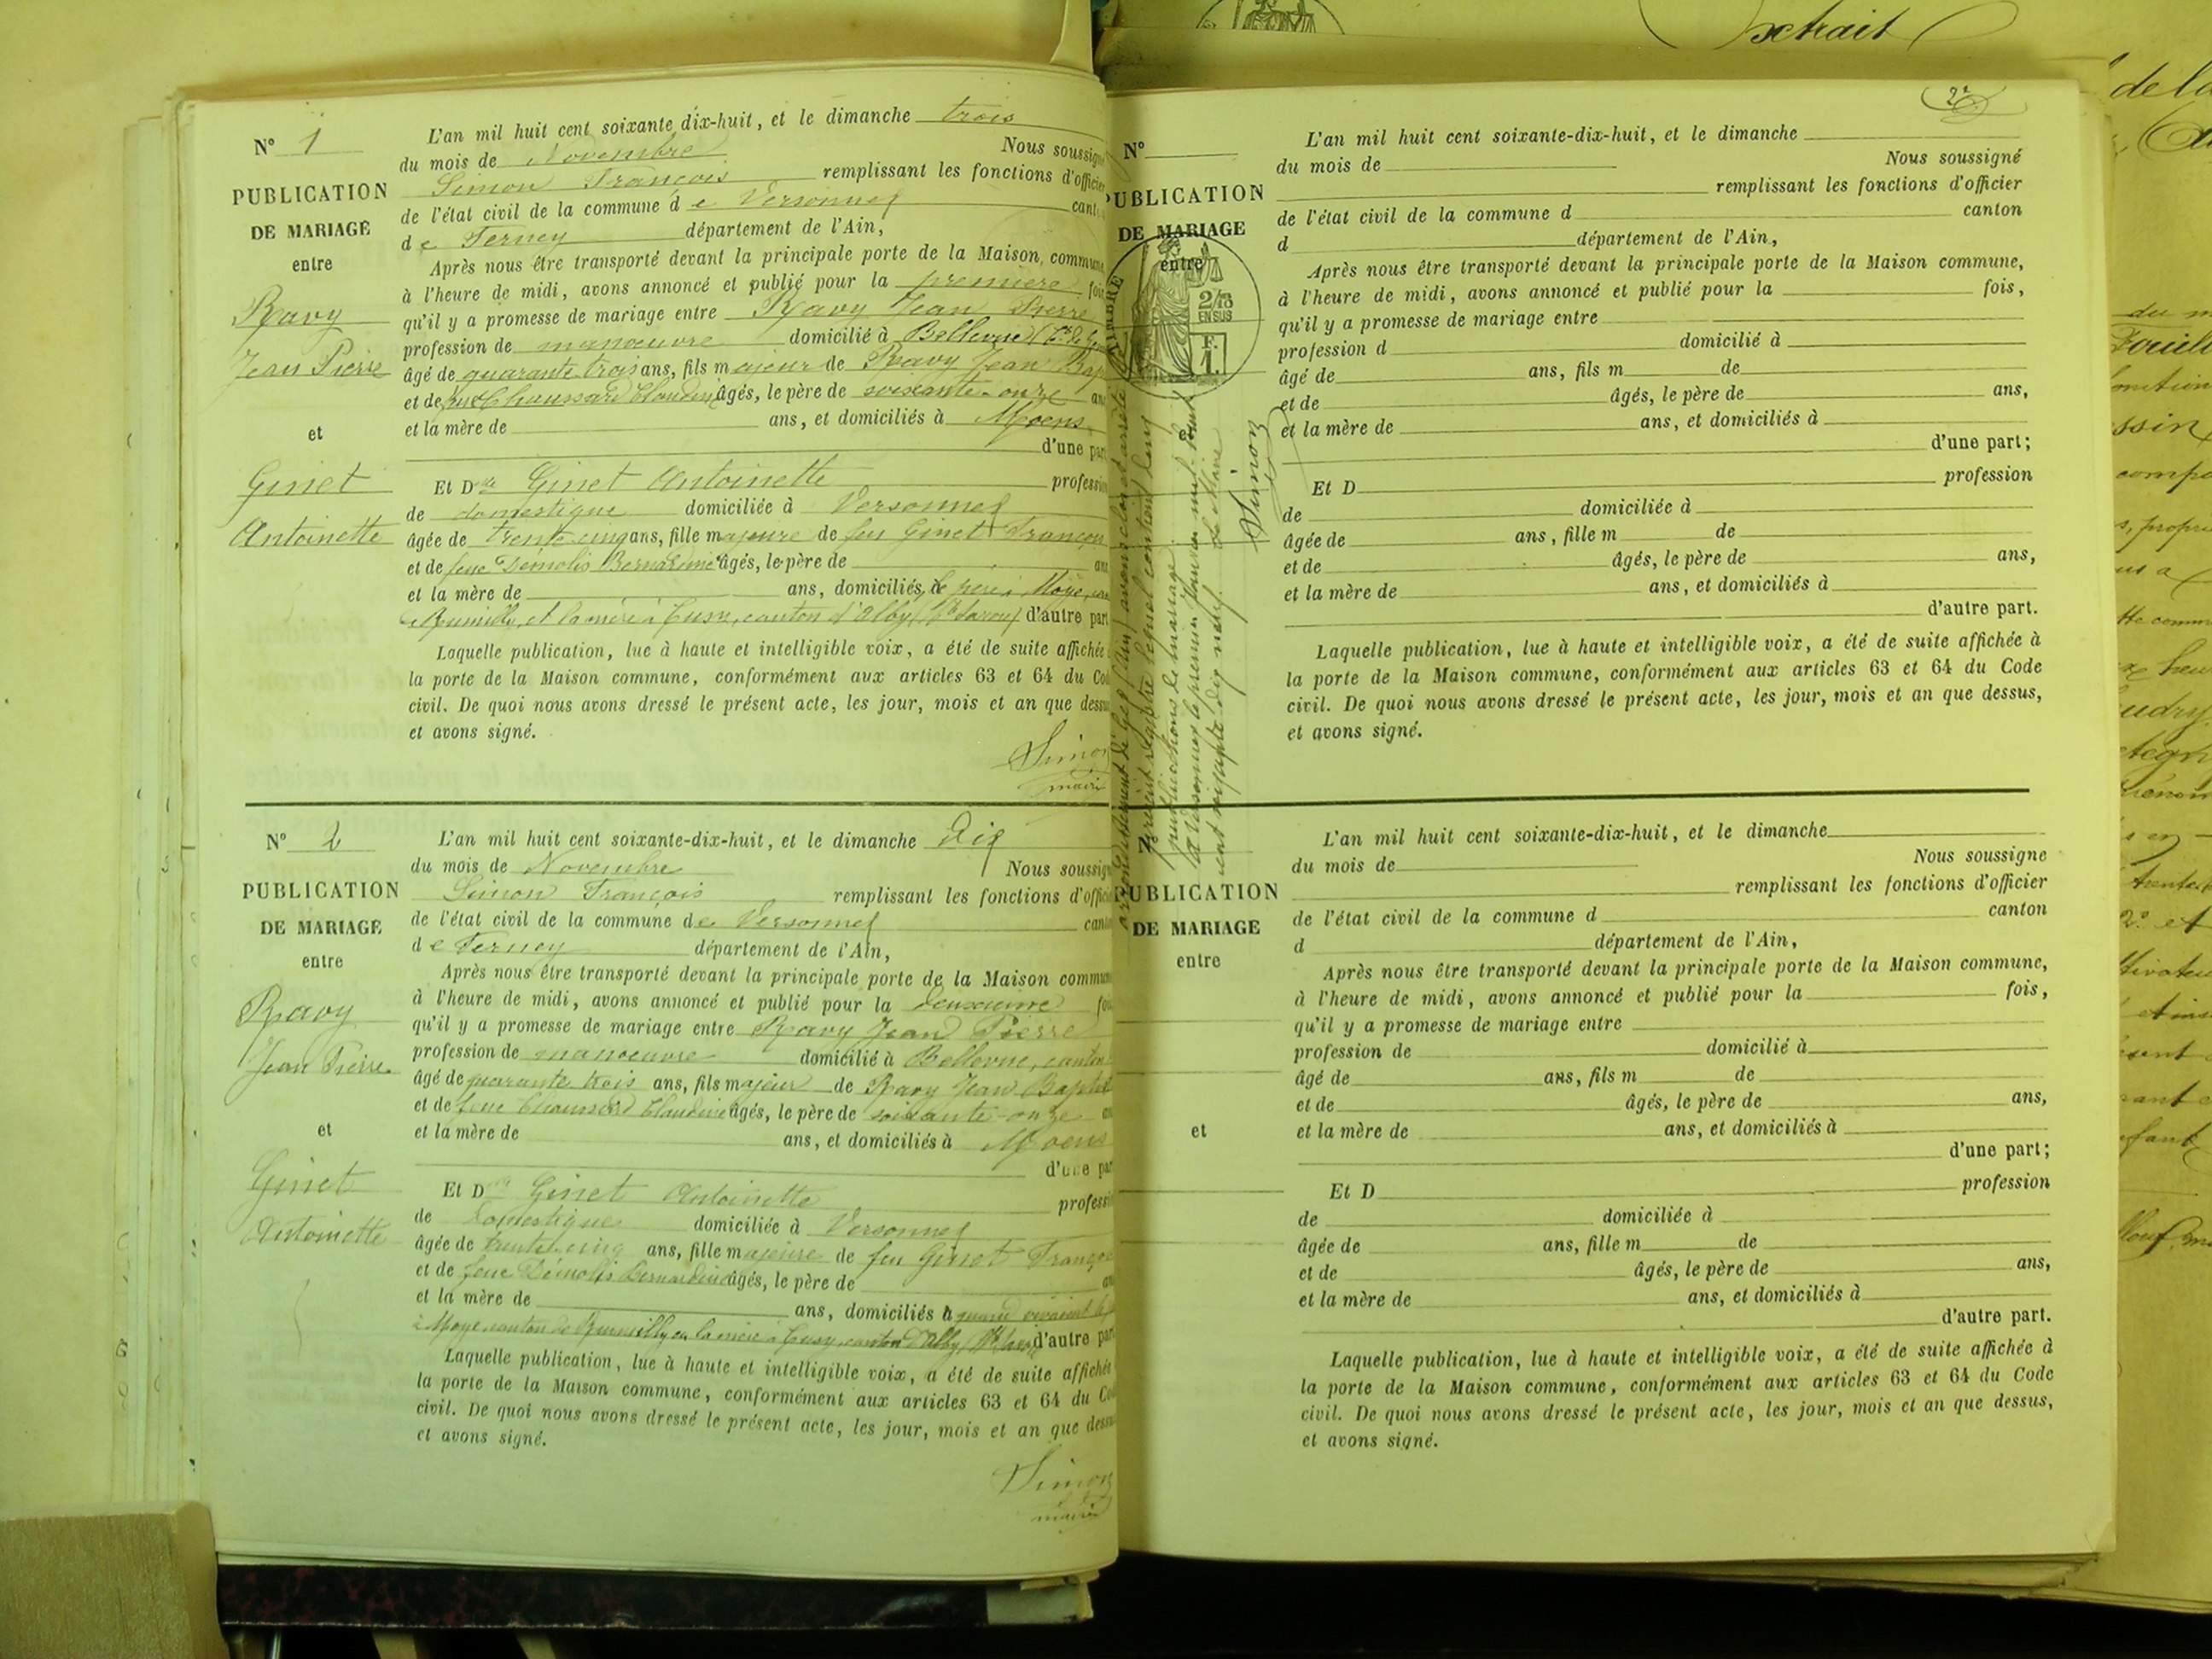 N° 1
PUBLICATION
DE MARIAGE
entre
Ravy
Jean Pierre
et
Ginet
Antoinette
L'an mil huit cent soixante dix-huit, et le dimanche trois
du mois de Novembre Nous soussigné
Simon François remplissant les fonctions d'officier
de l'état civil de la commune de Versonnex canton
de Ferney département de l'Ain,
Après nous être transporté devant la principale porte de la Maison commune
à l'heure de midi, avons annoncé et publié pour la première fois
qu'il y a promesse de mariage entre Ravy Jean Pierre
profession de manœuvre domicilié à Bellevue
âgé de quarante trois ans, fils majeur de Ravy Jean Bap
et de feue Chaussard Claudine âgés, le père de soixante-onze ans
et la mère de ans, et domiciliés à Moens
d'une part
Et Dlle Ginet Antoinette profession
de domestique domiciliée à Versonnex
âgée de trente cinq ans, fille majeure de feu Ginet François
et de feue Démolis Bernardine âgés, le père de ans
et la mère de ans, domiciliés, le père à Moye,
Rumilly, et la mère à Cusy, canton d'Alby (Hte Savoie) d'autre part
Laquelle publication, lue à haute et intelligible voix, a été de suite affichée
la porte de la Maison commune, conformément aux articles 63 et 64 du Code
civil. De quoi nous avons dressé le présent acte, les jour, mois et an que dessus
et avons signé.
Simon
maire
N° 2
PUBLICATION
DE MARIAGE
entre
Ravy
Jean Pierre
et
Ginet
Antoinette
L'an mil huit cent soixante-dix-huit, et le dimanche dix
du mois de Novembre Nous soussigné
Simon François remplissant les fonctions d'officier
de l'état civil de la commune de Versonnex canton
de Ferney département de l'Ain,
Après nous être transporté devant la principale porte de la Maison commune
à l'heure de midi, avons annoncé et publié pour la deuxième fois
qu'il y a promesse de mariage entre Ravy Jean Pierre
profession de manœuvre domicilié à Bellevue, canton
âgé de quarante trois ans, fils majeur de Ravy Jean Baptiste
et de feue Chaussard Claudine âgés, le père de soixante-onze ans
et la mère de ans, et domiciliés à Moens
d'une part
Et Dlle Ginet Antoinette profession
de domestique domiciliée à Versonnex
âgée de trente-cinq ans, fille majeure de feu Ginet François
et de feue Démolis Bernardine âgés, le père de ans
et la mère de ans, domiciliés à quand vivaient le
à Moye canton de Rumilly et la mère à Cusy, canton d'Alby (Hte Savoie) d'autre part
Laquelle publication, lue à haute et intelligible voix, a été de suite affichée
la porte de la Maison commune, conformément aux articles 63 et 64 du Code
civil. De quoi nous avons dressé le présent acte, les jour, mois et an que dessus
et avons signé.
Simon
maire
arrondissement de Gex (Ain) avons clos et arrêté
le présent registre lequel contient deux
publications de mariage.
à Versonnex le premier Janvier mil huit
cent soixante dix neuf. Le Maire
Simon
2e
N°
PUBLICATION
DE MARIAGE
entre
TIMBRE
2/10
EN SUS
F.
1.
et
L'an mil huit cent soixante-dix-huit, et le dimanche
du mois de Nous soussigné
remplissant les fonctions d'officier
de l'état civil de la commune d canton
d département de l'Ain,
Après nous être transporté devant la principale porte de la Maison commune,
à l'heure de midi, avons annoncé et publié pour la fois,
qu'il y a promesse de mariage entre
profession d domicilié à
âgé de ans, fils m de
et de âgés, le père de ans,
et la mère de ans, et domiciliés à
d'une part;
Et D profession
de domiciliée à
âgée de ans, fille m de
et de âgés, le père de ans,
et la mère de ans, et domiciliés à
d'autre part.
Laquelle publication, lue à haute et intelligible voix, a été de suite affichée à
la porte de la Maison commune, conformément aux articles 63 et 64 du Code
civil. De quoi nous avons dressé le présent acte, les jour, mois et an que dessus,
et avons signé.
PUBLICATION
DE MARIAGE
entre
et
L'an mil huit cent soixante-dix-huit, et le dimanche
du mois de Nous soussigné
remplissant les fonctions d'officier
de l'état civil de la commune d canton
d département de l'Ain,
Après nous être transporté devant la principale porte de la Maison commune,
à l'heure de midi, avons annoncé et publié pour la fois,
qu'il y a promesse de mariage entre
profession de domicilié à
âgé de ans, fils m de
et de âgés, le père de ans,
et la mère de ans, et domiciliés à
d'une part;
Et D profession
de domiciliée à
âgée de ans, fille m de
et de âgés, le père de ans,
et la mère de ans, et domiciliés à
d'autre part.
Laquelle publication, lue à haute et intelligible voix, a été de suite affichée à
la porte de la Maison commune, conformément aux articles 63 et 64 du Code
civil. De quoi nous avons dressé le présent acte, les jour, mois et an que dessus,
et avons signé.
Extrait
de la